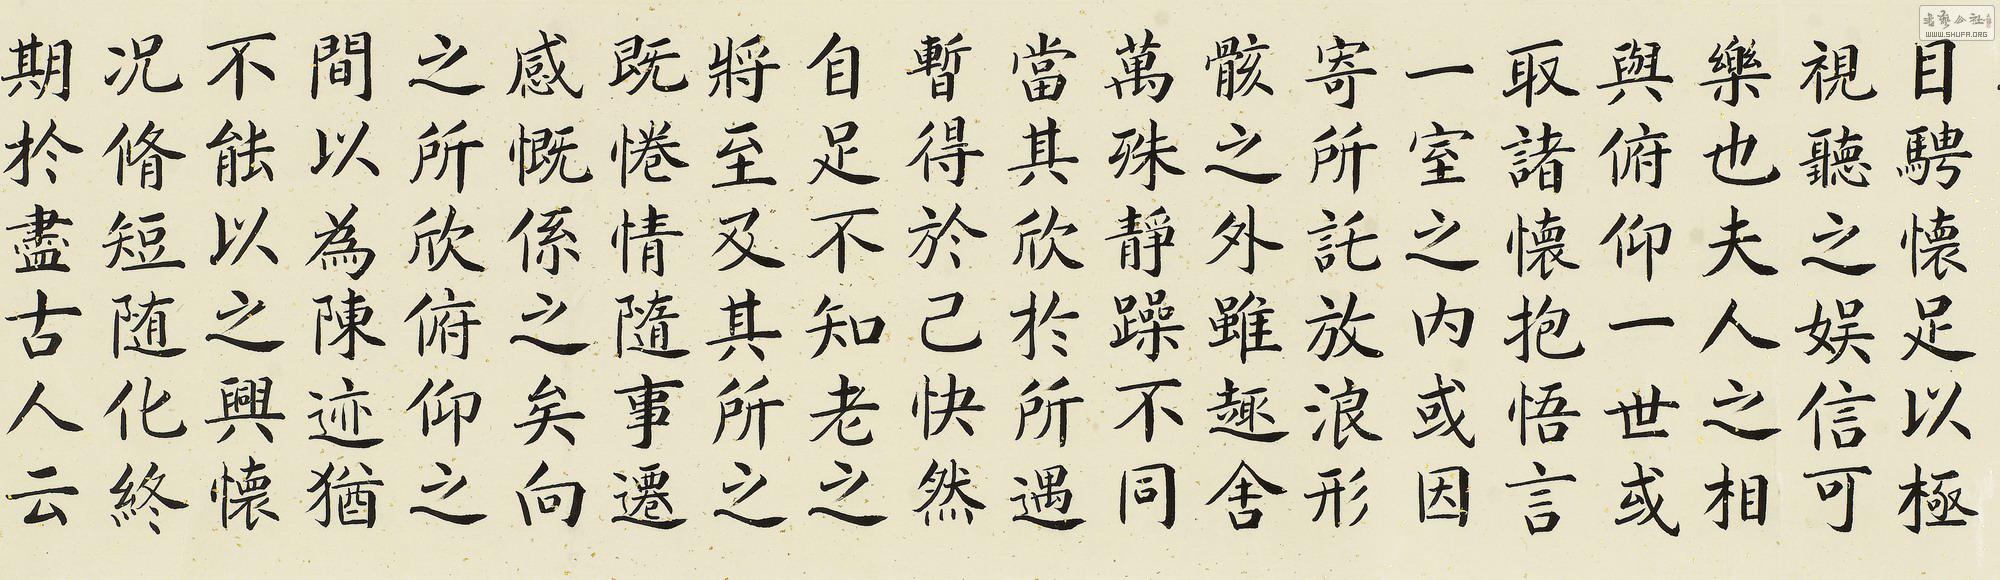 目騁懷足以極
視聽之娛信可
樂也夫人之相
與俯仰一世或
取諸懷抱悟言
一室之内或因
寄所託放浪形
骸之外雖趣舍
萬殊靜躁不同
當其欣於所遇
暫得於己快然
自足不知老之
將至及其所之
既惓情隨事遷
感慨係之矣向
之所欣俯仰之
間以為陳迹猶
不能以之興懷
况脩短随化終
期於盡古人云
書藝公社
WWW.SHUFA.ORG